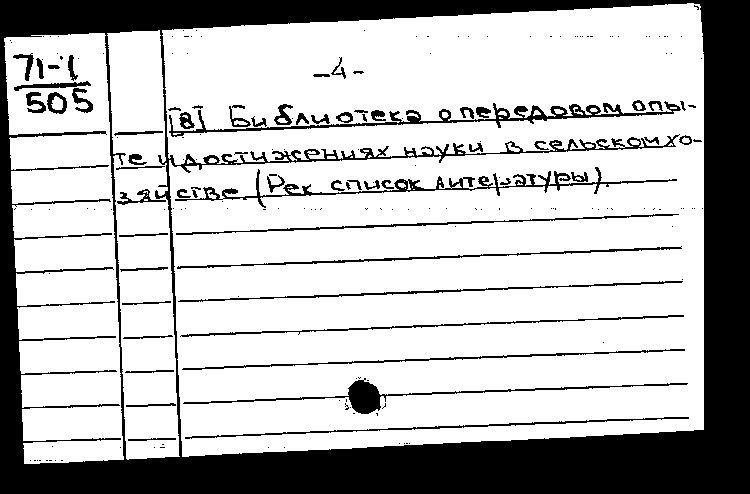 71-1
505
-4-
[8] Библиотека о передовом опы-
те и достижениях науки в сельском хо-
зяйстве. (Рек список литературы).